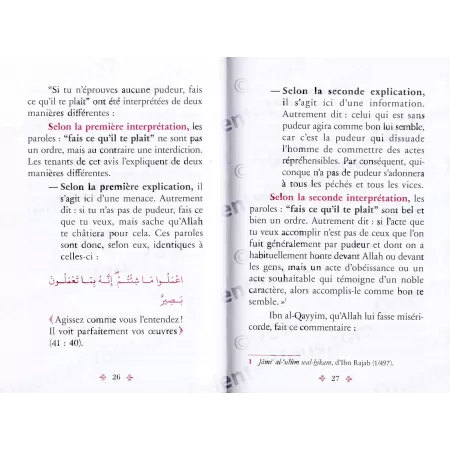 "Si tu n'éprouves aucune pudeur, fais
ce qu'il te plaît" ont été interprétées de deux
manières différentes :
Selon la première interprétation, les
paroles : "fais ce qu'il te plaît" ne sont pas
un ordre, mais au contraire une interdiction.
Les tenants de cet avis l'expliquent de deux
manières différentes.
— Selon la première explication, il
s'agit ici d'une menace. Autrement
dit : si tu n'as pas de pudeur, fais ce
que tu veux, mais sache qu'Allah
te châtiera pour cela. Ces paroles
sont donc, selon eux, identiques à
celles-ci :
اعْمَلُوا مَا شِئْتُمْ إِنَّهُ بِمَا تَعْمَلُونَ
بَصِيرٌ
﴾ Agissez comme vous l'entendez !
Il voit parfaitement vos œuvres ﴿
(41 : 40).
26
— Selon la seconde explication,
il s'agit ici d'une information.
Autrement dit : celui qui est sans
pudeur agira comme bon lui semble,
car c'est la pudeur qui dissuade
l'homme de commettre des actes
répréhensibles. Par conséquent, qui-
conque n'a pas de pudeur s'adonnera
à tous les péchés et tous les vices.
Selon la seconde interprétation, les
paroles : "fais ce qu'il te plaît" sont bel et
bien un ordre. Autrement dit : si l'acte que
tu veux accomplir n'est pas de ceux que l'on
fuit généralement par pudeur et dont on a
habituellement honte devant Allah ou devant
les gens, mais un acte d'obéissance ou un
acte souhaitable qui témoigne d'un noble
caractère, alors accomplis-le comme bon te
semble. »¹
Ibn al-Qayyim, qu'Allah lui fasse miséri-
corde, fait ce commentaire :
1 Jâmi' al-'ulûm wal-hikam, d'Ibn Rajab (1/497).
27